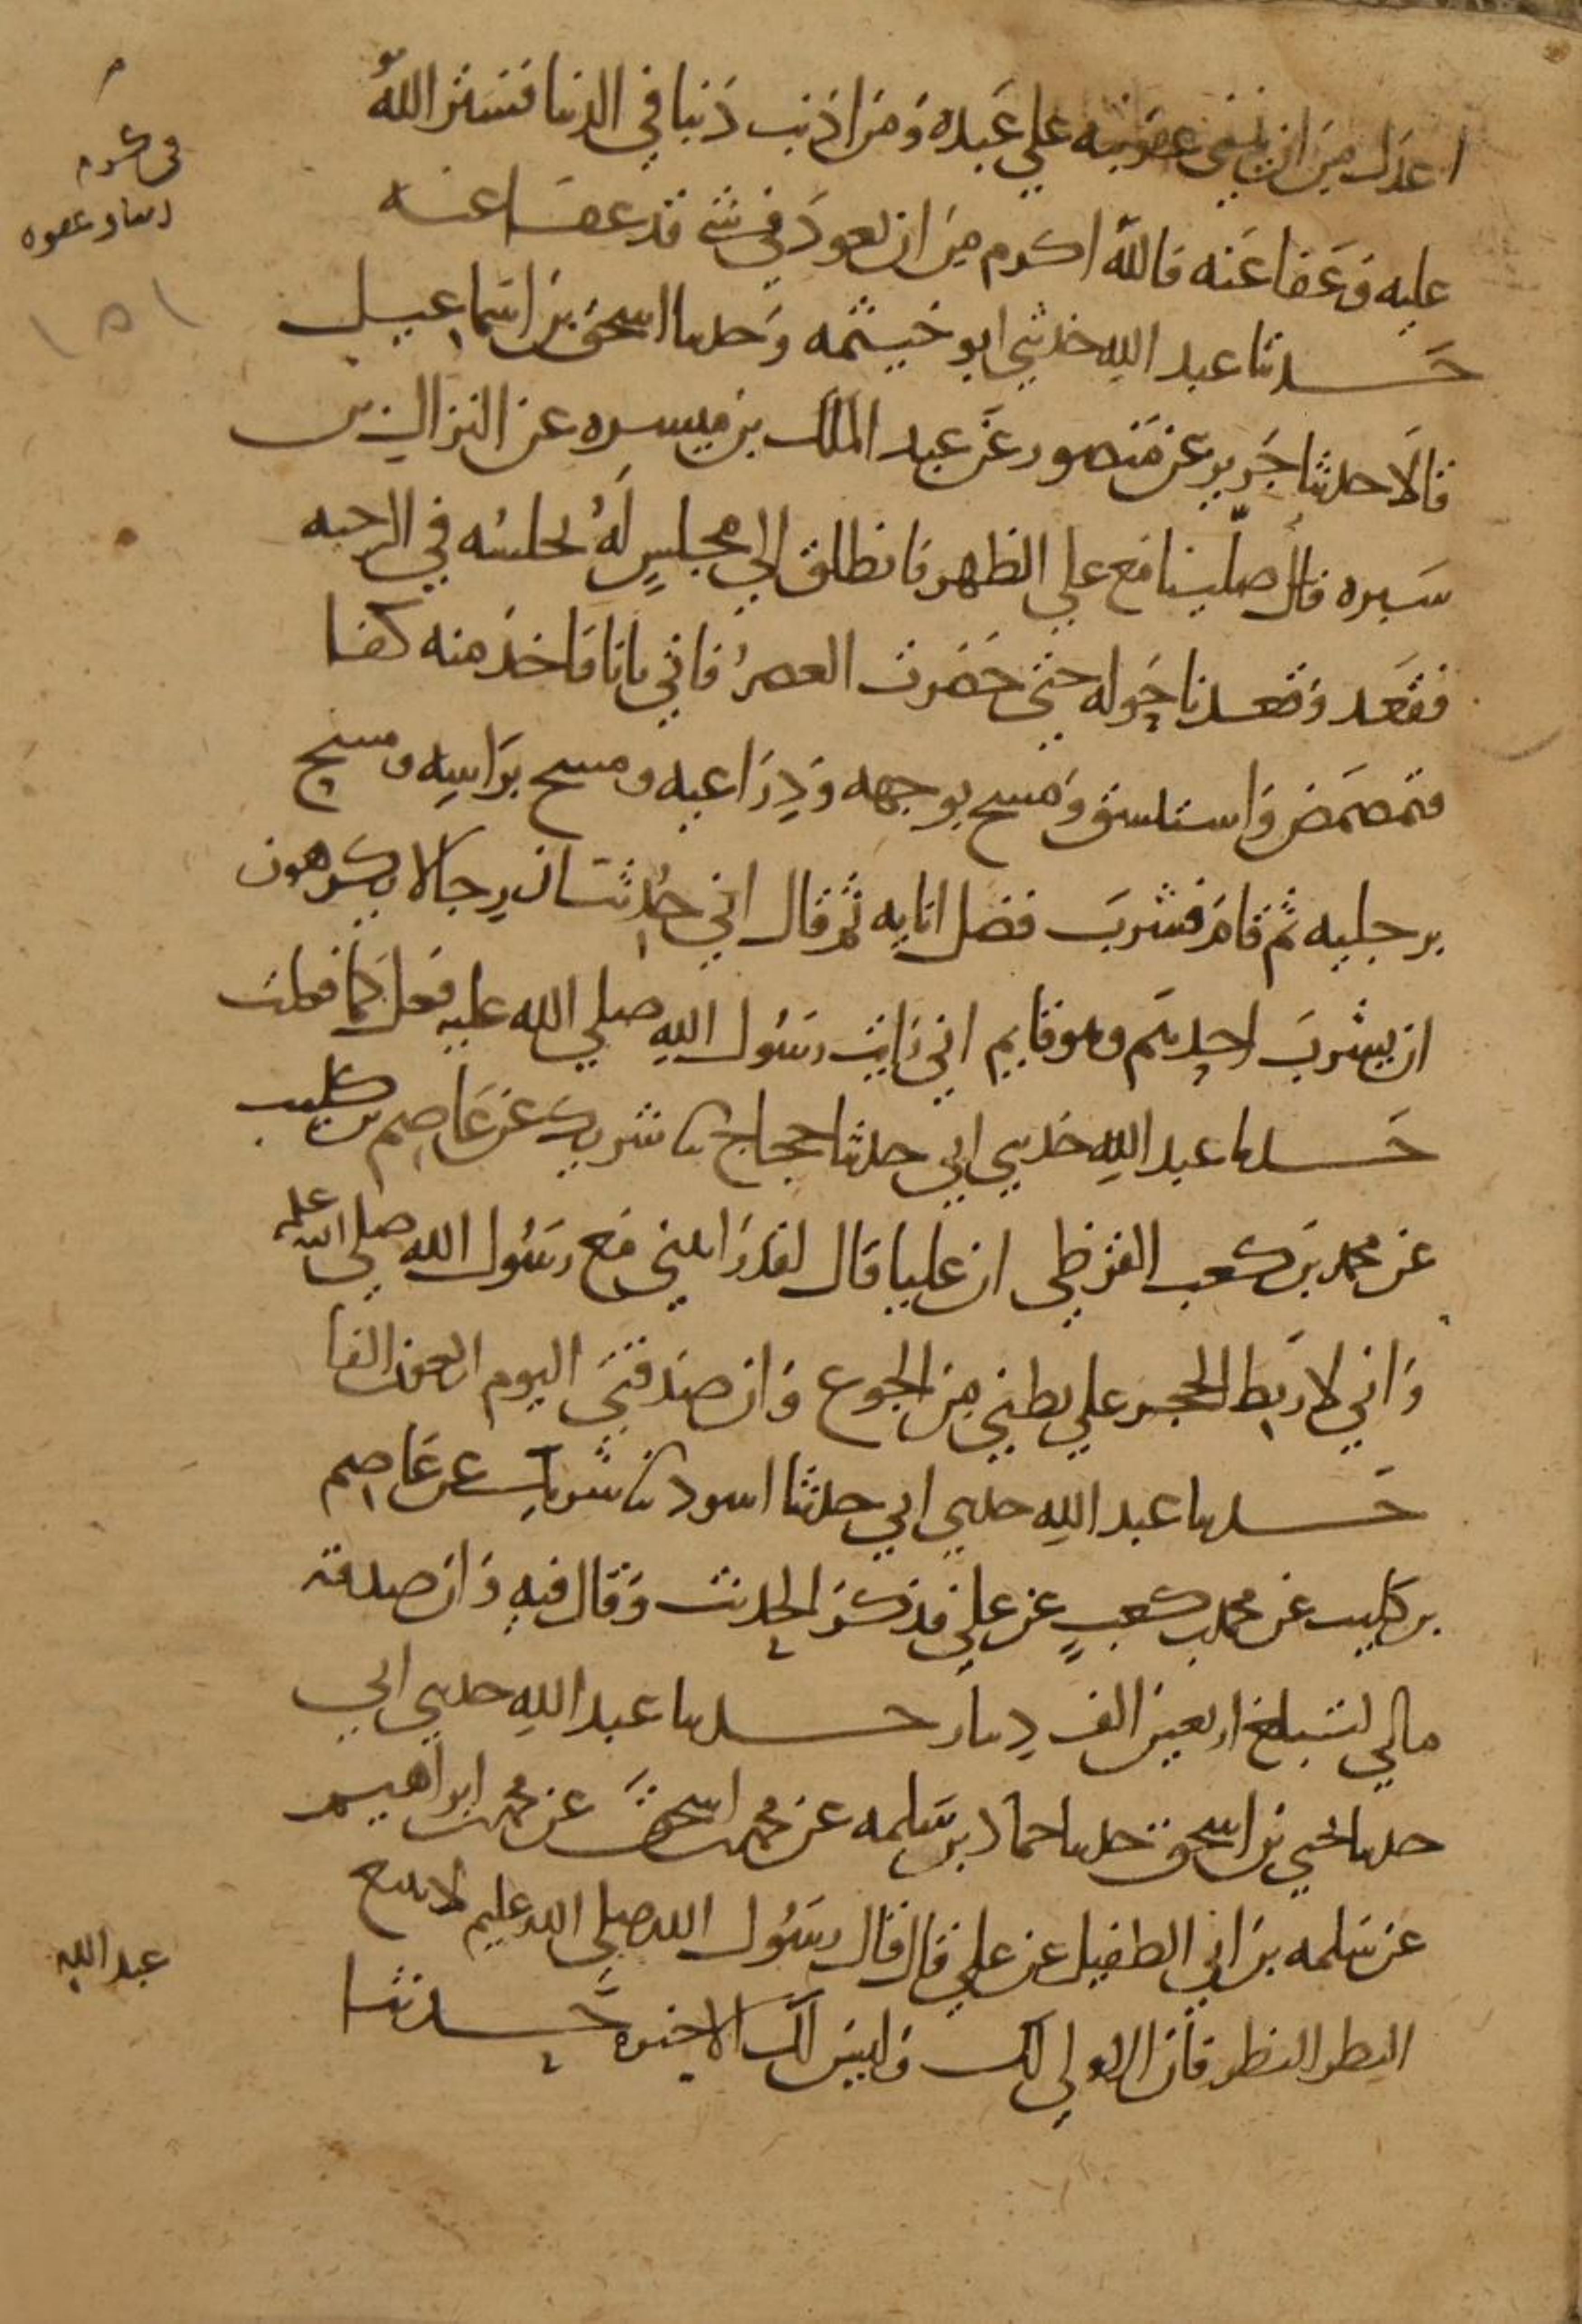 اعدل من ان يثني عقوبته علي عبده ومن اذنب ذنبا في الدنيا فستر الله
عليه وعفا عنه فالله اكرم من ان يعود في شي قد عفا عنه
حدثنا عبد الله حدثني ابو خيثمه وحدثنا اسحق بن اسماعيل
قالا حدثنا جرير عن منصور عن عبد الملك بن ميسره عن النزال بن
سبره قال صلينا مع علي الظهر فانطلق الي مجلس له يجلسه في الرحبه
فقعد وقعدنا حوله حتي حضرت العصر فاتي باناء فاخذ منه كفا
فتمضمض واستنشق ومسح بوجهه وذراعيه ومسح براسه ومسح
برجليه ثم قام فشرب فضل انايه ثم قال اني حدثت ان رجالا يكرهون
ان يشرب احدهم وهو قايم اني رايت رسول الله صلي الله عليه فعل كما فعلت
حدثنا عبد الله حدثني ابي حدثنا حجاج ثنا شريك عن عاصم بن كليب
عن محمد بن كعب القرظي ان عليا قال لقد رايتني مع رسول الله صلي الله عليه
واني لاربط الحجر علي بطني من الجوع وان صدقتي اليوم اربعون الفا
حدثنا عبد الله حدثني ابي حدثنا اسود ثنا شريك عن عاصم
بن كليب عن محمد بن كعب عن علي فذكر الحديث وقال فيه وان صدقة
مالي لتبلغ اربعين الف دينار حدثنا عبد الله حدثني ابي
حدثنا يحيي بن اسحق حدثنا حماد بن سلمه عن محمد بن اسحق عن محمد بن ابراهيم
عن سلمه بن ابي الطفيل عن علي قال قال رسول الله صلي الله عليه لا تتبع
النظر النظر فان الاولي لك وليس لك الاخيره حدثنا
عبد الله